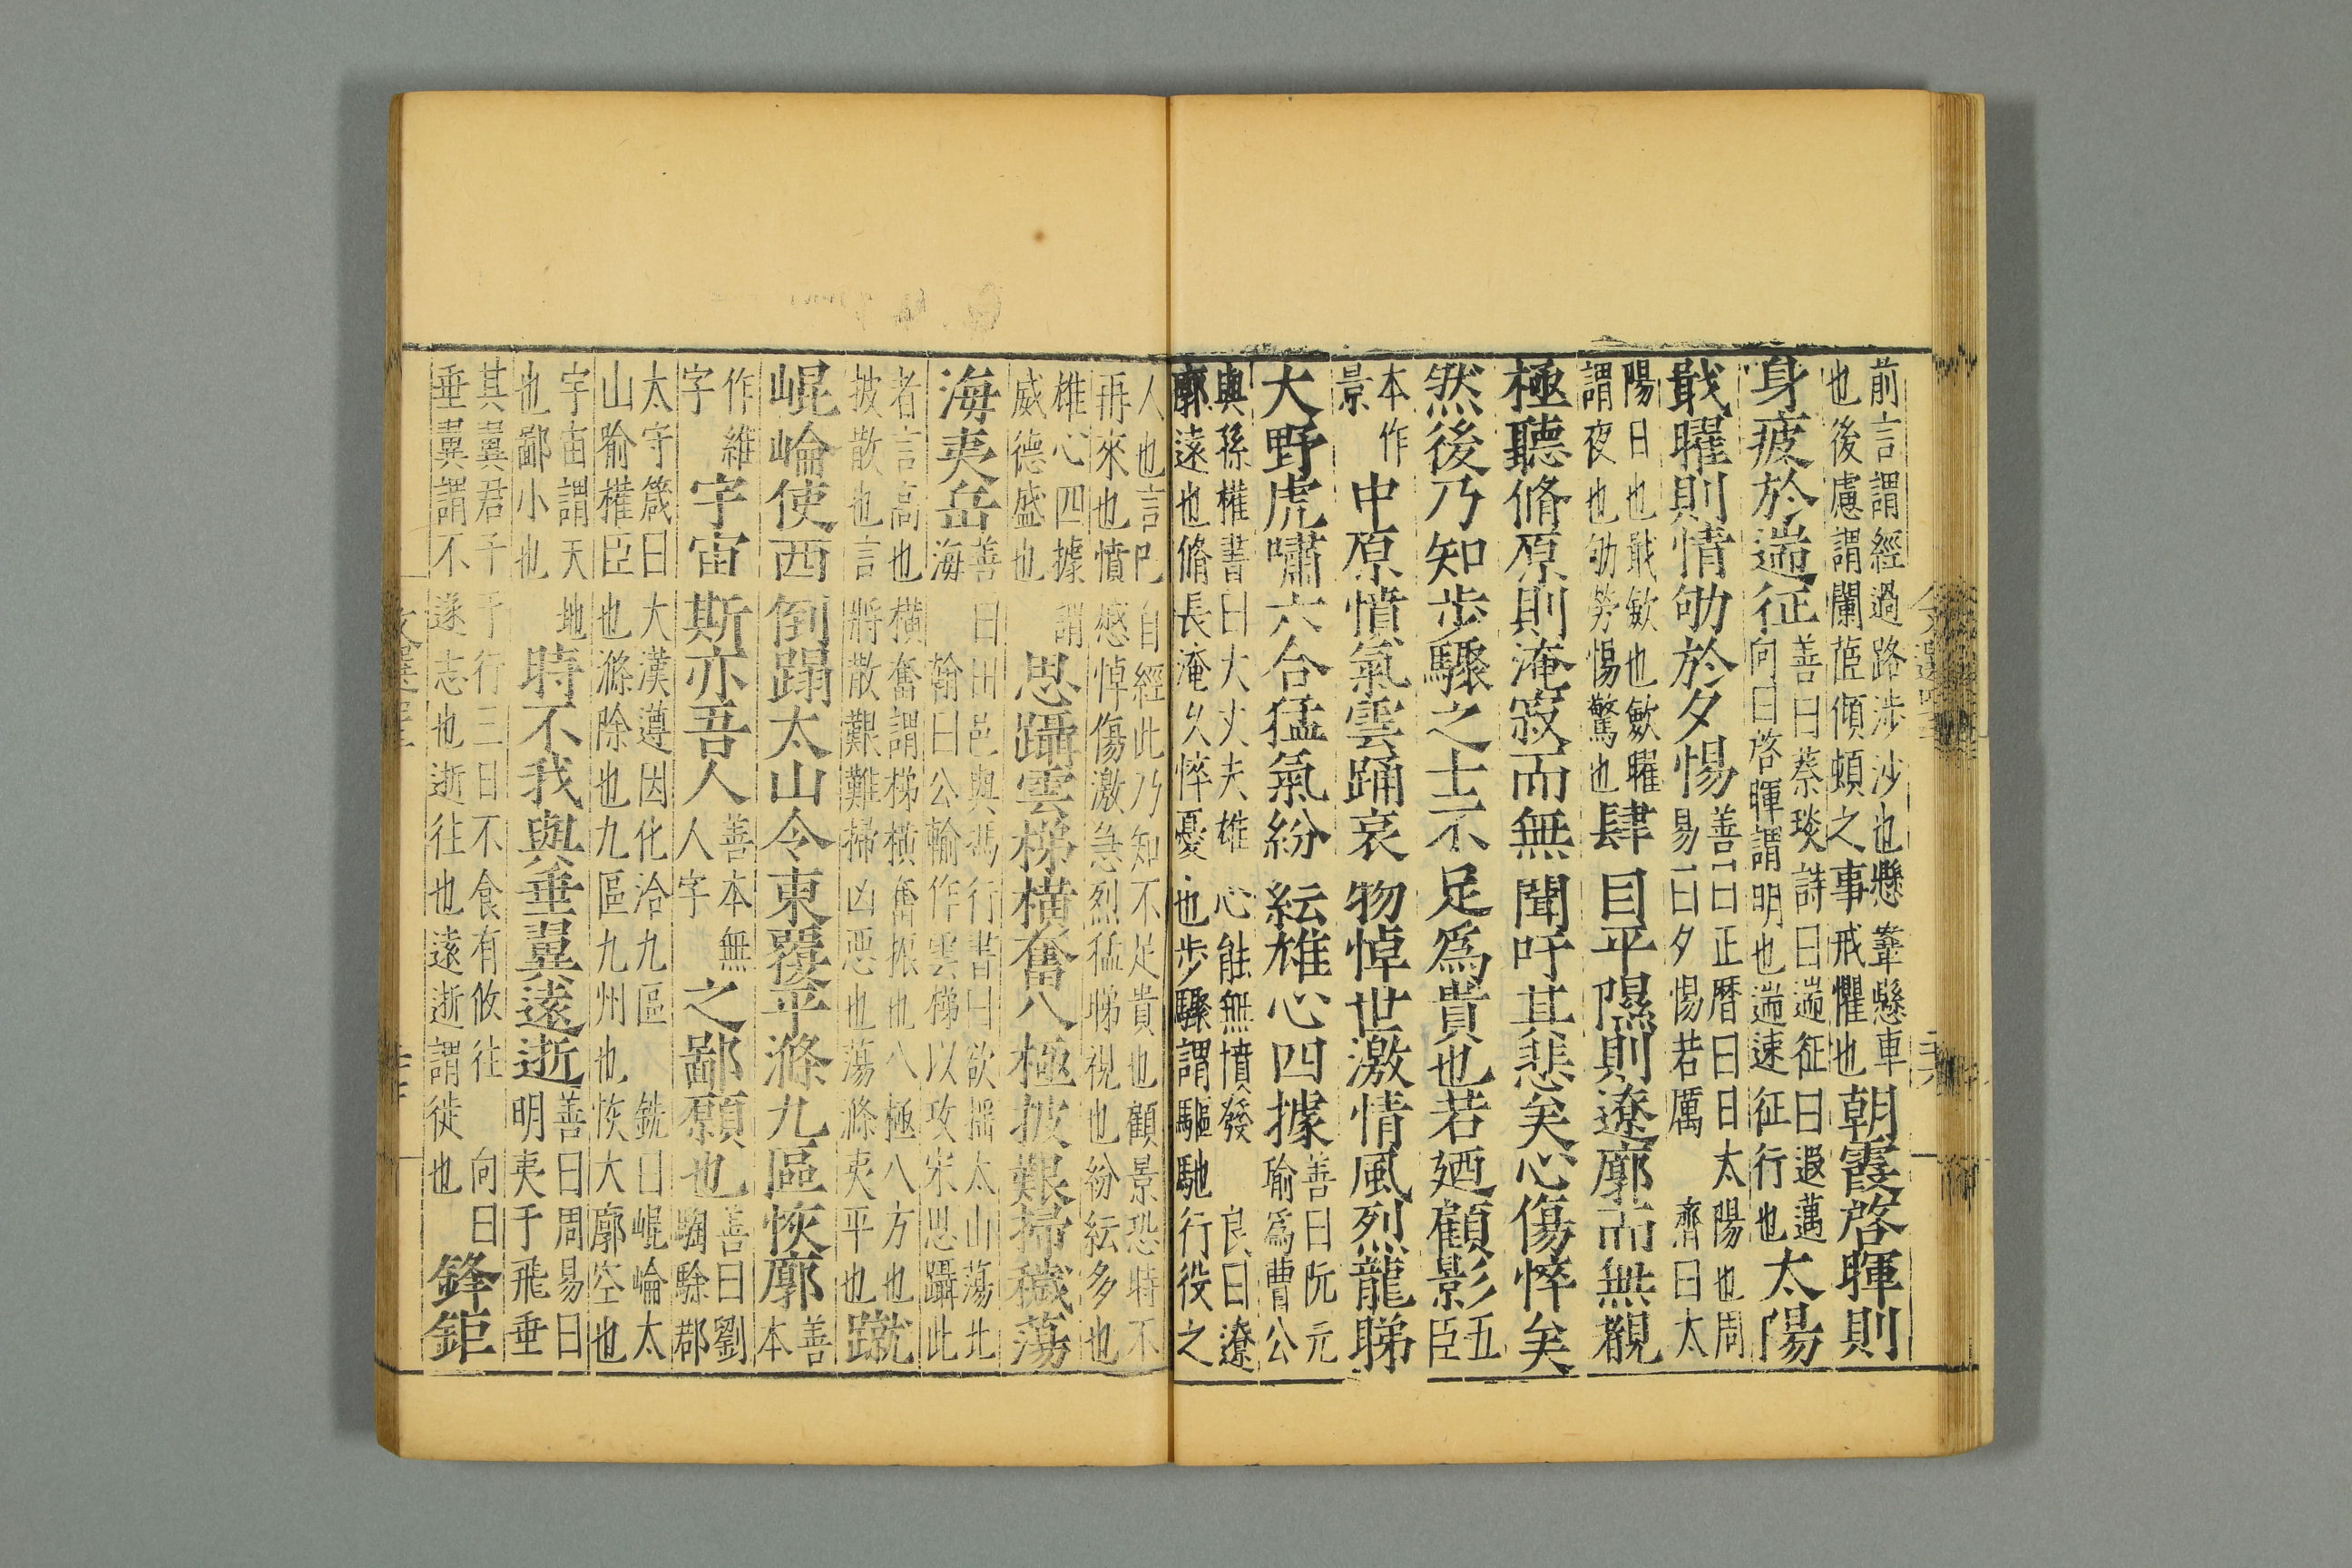 前言謂經過路涉沙也懸鞌懸車
也後慮謂闌茝傾頓之事戒懼也
朝霞啓暉則
身疲於遄征
善曰蔡琰詩曰遄征日遐邁
向曰啓暉謂明也遄速征行也
太陽
戢曜則情劬於夕惕
善曰正曆曰日太陽也周
易曰夕惕若厲　齊曰太
陽日也戢斂也斂曜
謂夜也劬勞惕驚也
肆目平隰則遼廓而無覩
極聽脩原則淹寂而無聞吁其悲矣心傷悴矣
然後乃知步驟之士不足爲貴也若廼顧影
五臣
本作
景
中原憤氣雲踊哀物悼世激情風烈龍睇
大野虎嘯六合猛氣紛紜雄心四據
善曰阮元
瑜爲曹公
與孫權書曰大丈夫雄心能無憤發　良曰遼
廓遠也脩長淹久悴憂也步驟謂驅馳行役之
人也言巴自經此乃知不足貴也顧景恐時不
再來也憤慜悼傷激急烈猛睇視也紛紜多也
雄心四據謂
威德盛也
思躡雲梯橫奮八極披艱掃穢蕩
海夷岳
善曰田邑與馮衍書曰欲揺太山蕩北
海　翰曰公輸作雲梯以攻宋思躡此
者言高也橫奮謂梯橫奮振也八極八方也
披散也言將散艱難掃凶惡也蕩滌夷平也
蹴
崐崘使西倒蹋太山令東覆平滌九區恢廓
善本
作維
字
宇宙斯亦吾人
善本無
人字
之鄙願也
善曰劉
騊駼郡
太守箴曰大漢遵因化洽九區　銑曰崐崘太
山喻權臣也滌除也九區九州也恢大廓空也
宇宙謂天地
也鄙小也
時不我與垂翼遠逝
善曰周易曰
明夷于飛垂
其翼君子于行三日不食有攸往　向曰
垂翼謂不遂志也逝往也遠逝謂徙也
鋒鉅